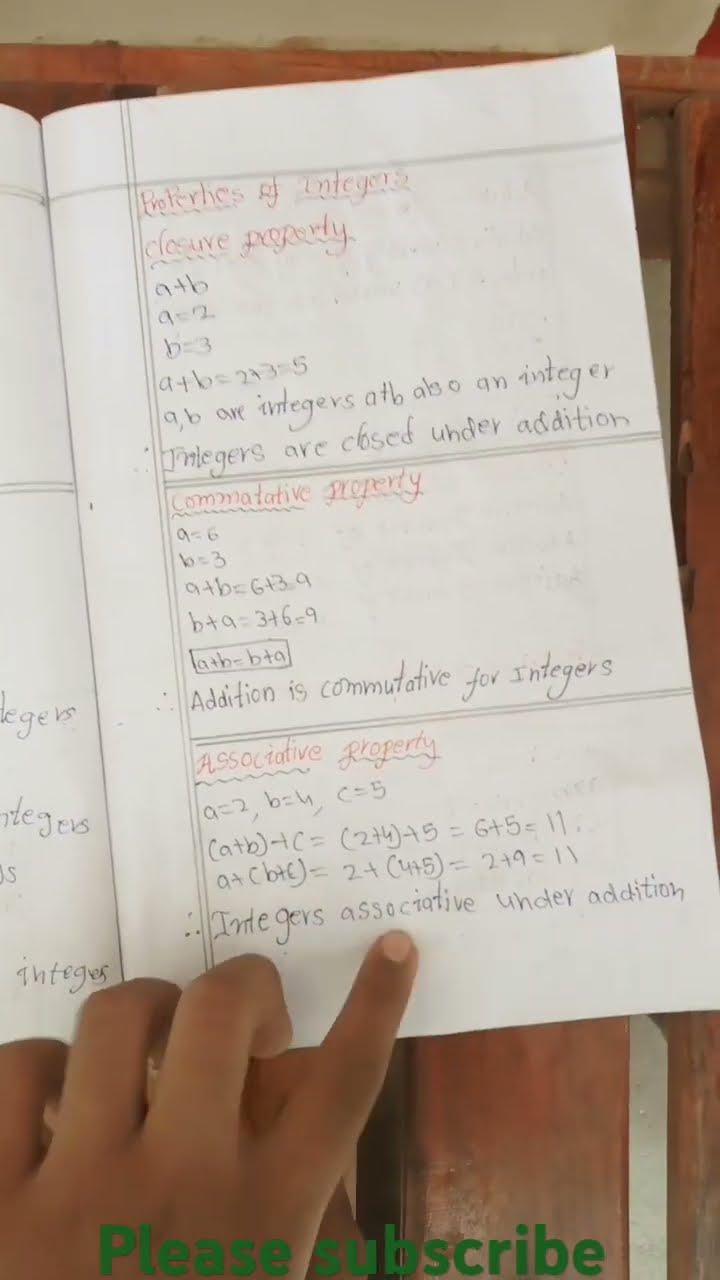 Properties of Integers
closure property
a+b
a=2
b=3
a+b=2+3=5
a,b are integers a+b also an integer
∴ Integers are closed under addition
Commatative property
a=6
b=3
a+b=6+3=9
b+a=3+6=9
a+b=b+a
∴ Addition is commutative for Integers
Associative property
a=2, b=4, c=5
(a+b)+c= (2+4)+5 = 6+5= 11.
a+(b+c)= 2+(4+5)= 2+9=11
∴ Integers associative under addition
tegers
ntegers
s
integes
Please subscribe